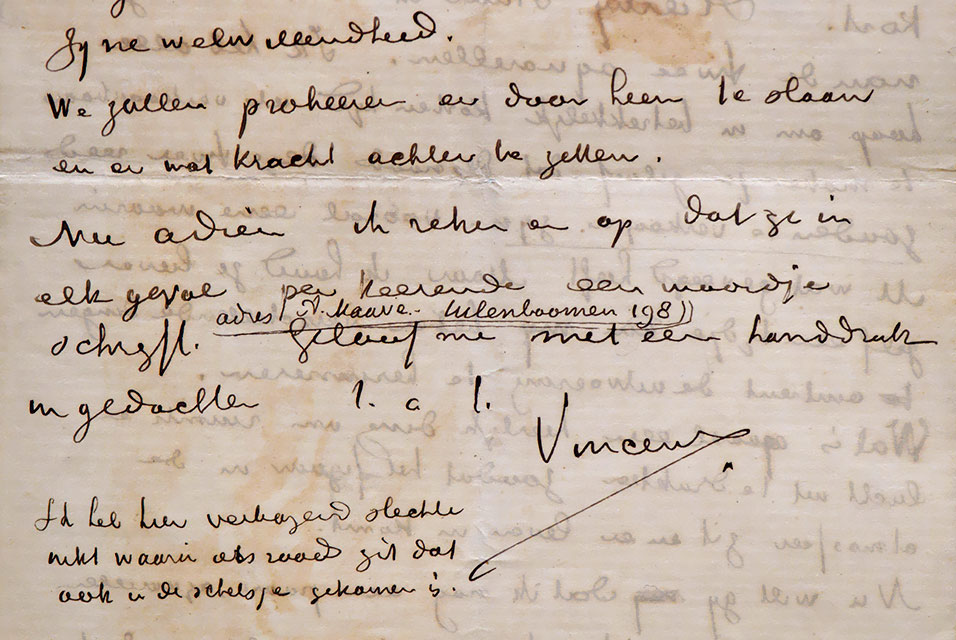 zyne welwillendheid.
We zullen probeeren er door heen te slaan
en er wat kracht achter te zetten.
Nu adieu ik reken er op dat ge in
elk geval per keerende een woordje
adres (A. Mauve. - Uilenboomen 198))
schrijft. Geloof me met een handdruk
in gedachten t. à t.
Vincent
Ik heb hier verbazend slechte
inkt waarin iets zit dat
ook in de schetsje gekomen is.